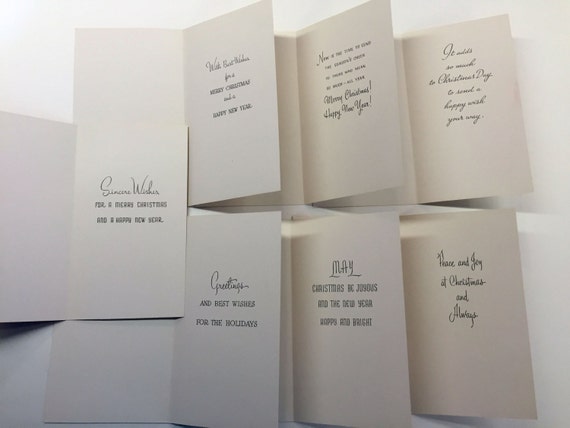 With Best Wishes
for a
MERRY CHRISTMAS
and a
HAPPY NEW YEAR
Now IS THE TIME TO SEND
THE SEASON'S CHEER
TO THOSE WHO MEAN
SO MUCH - ALL YEAR
Merry Christmas!
Happy New Year!
It adds
so much
to Christmas Day
to send a
happy wish
your way.
Sincere Wishes
FOR A MERRY CHRISTMAS
AND A HAPPY NEW YEAR.
Greetings
AND BEST WISHES
FOR THE HOLIDAYS
MAY
CHRISTMAS BE JOYOUS
AND THE NEW YEAR
HAPPY AND BRIGHT
Peace and Joy
at Christmas
and
Always